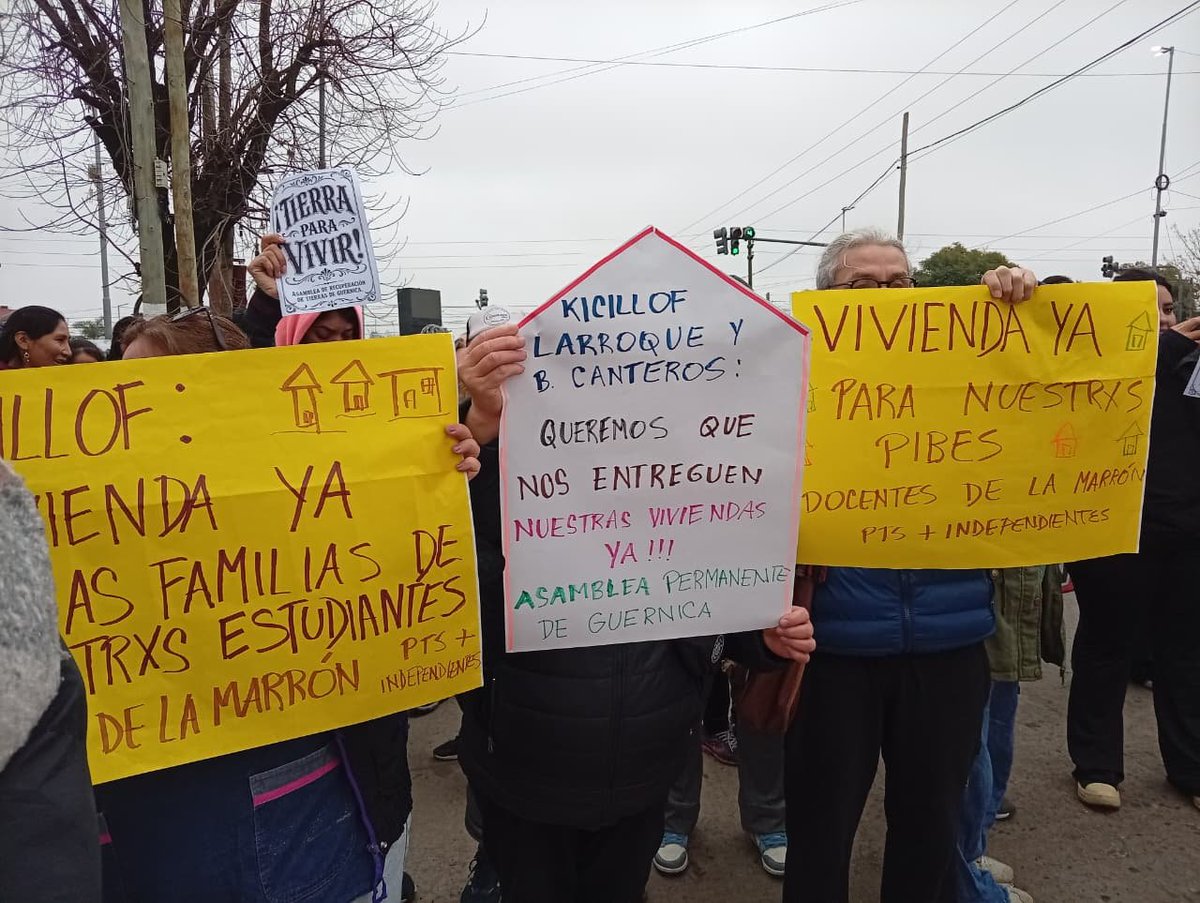 ¡TIERRA
PARA
VIVIR!
ASAMBLEA DE RECUPERACIÓN
DE TIERRAS DE GUERNICA
ILLOF:
IENDA YA
AS FAMILIAS DE
TRXS ESTUDIANTES
DE LA MARRÓN
PTS +
INDEPENDIENTES
KICILLOF
LARROQUE Y
B. CANTEROS:
QUEREMOS QUE
NOS ENTREGUEN
NUESTRAS VIVIENDAS
YA!!!
ASAMBLEA PERMANENTE
DE GUERNICA
VIVIENDA YA
PARA NUESTRXS
PIBES
DOCENTES DE LA MARRÓN
PTS + INDEPENDIENTES